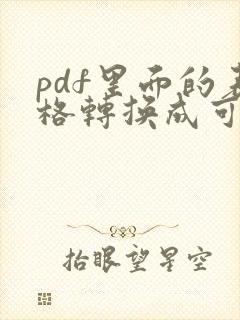 pdf里面的表
格轉换成可
抬眼望星空